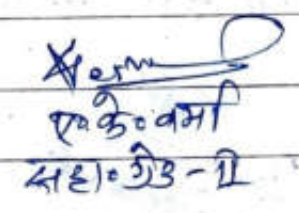 ए॰ के॰ वर्मा
सहा॰ ग्रेड - II